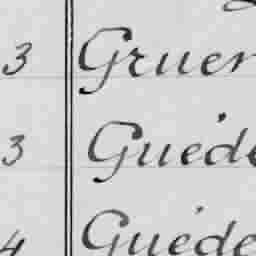 3 Gruer
3 Guéde
4 Guéde